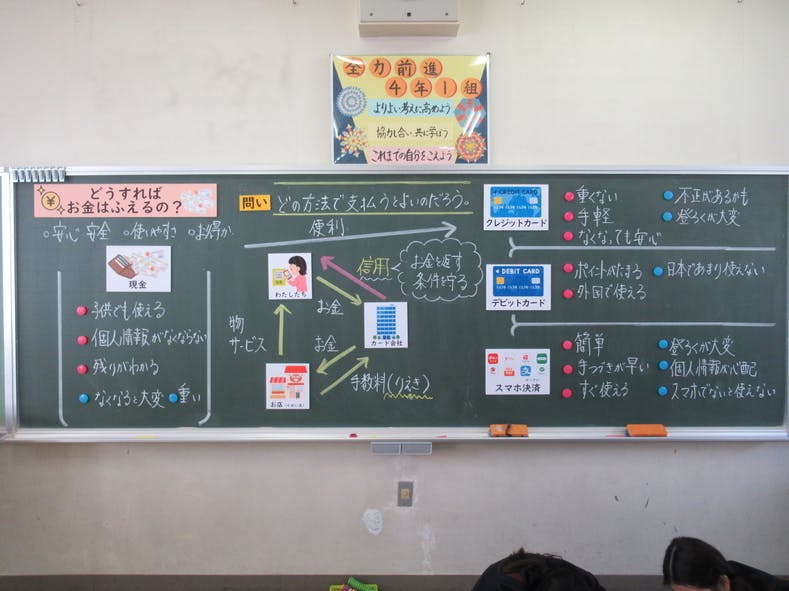 全力前進
4年1組
よりよい考えに高めよう
協力し合い、共に学ぼう
これまでの自分をこえよう
どうすれば
お金はふえるの？
問い どの方法で支払うとよいのだろう。
○安心 安全 ○使いやすさ ○お得か
便利
現金
子供でも使える
個人情報がなくならない
残りがわかる
なくなると大変 重い
わたしたち
信用
お金を返す
条件を守る
お金
カード会社
物
サービス
お金
手数料(りえき)
お店
CREDIT CARD
クレジットカード
重くない
手軽
なくなっても安心
不正があるかも
登ろくが大変
DEBIT CARD
デビットカード
ポイントがたまる
外国で使える
日本であまり使えない
スマホ決済
簡単
手つづきが早い
すぐ使える
登ろくが大変
個人情報が心配
スマホでないと使えない